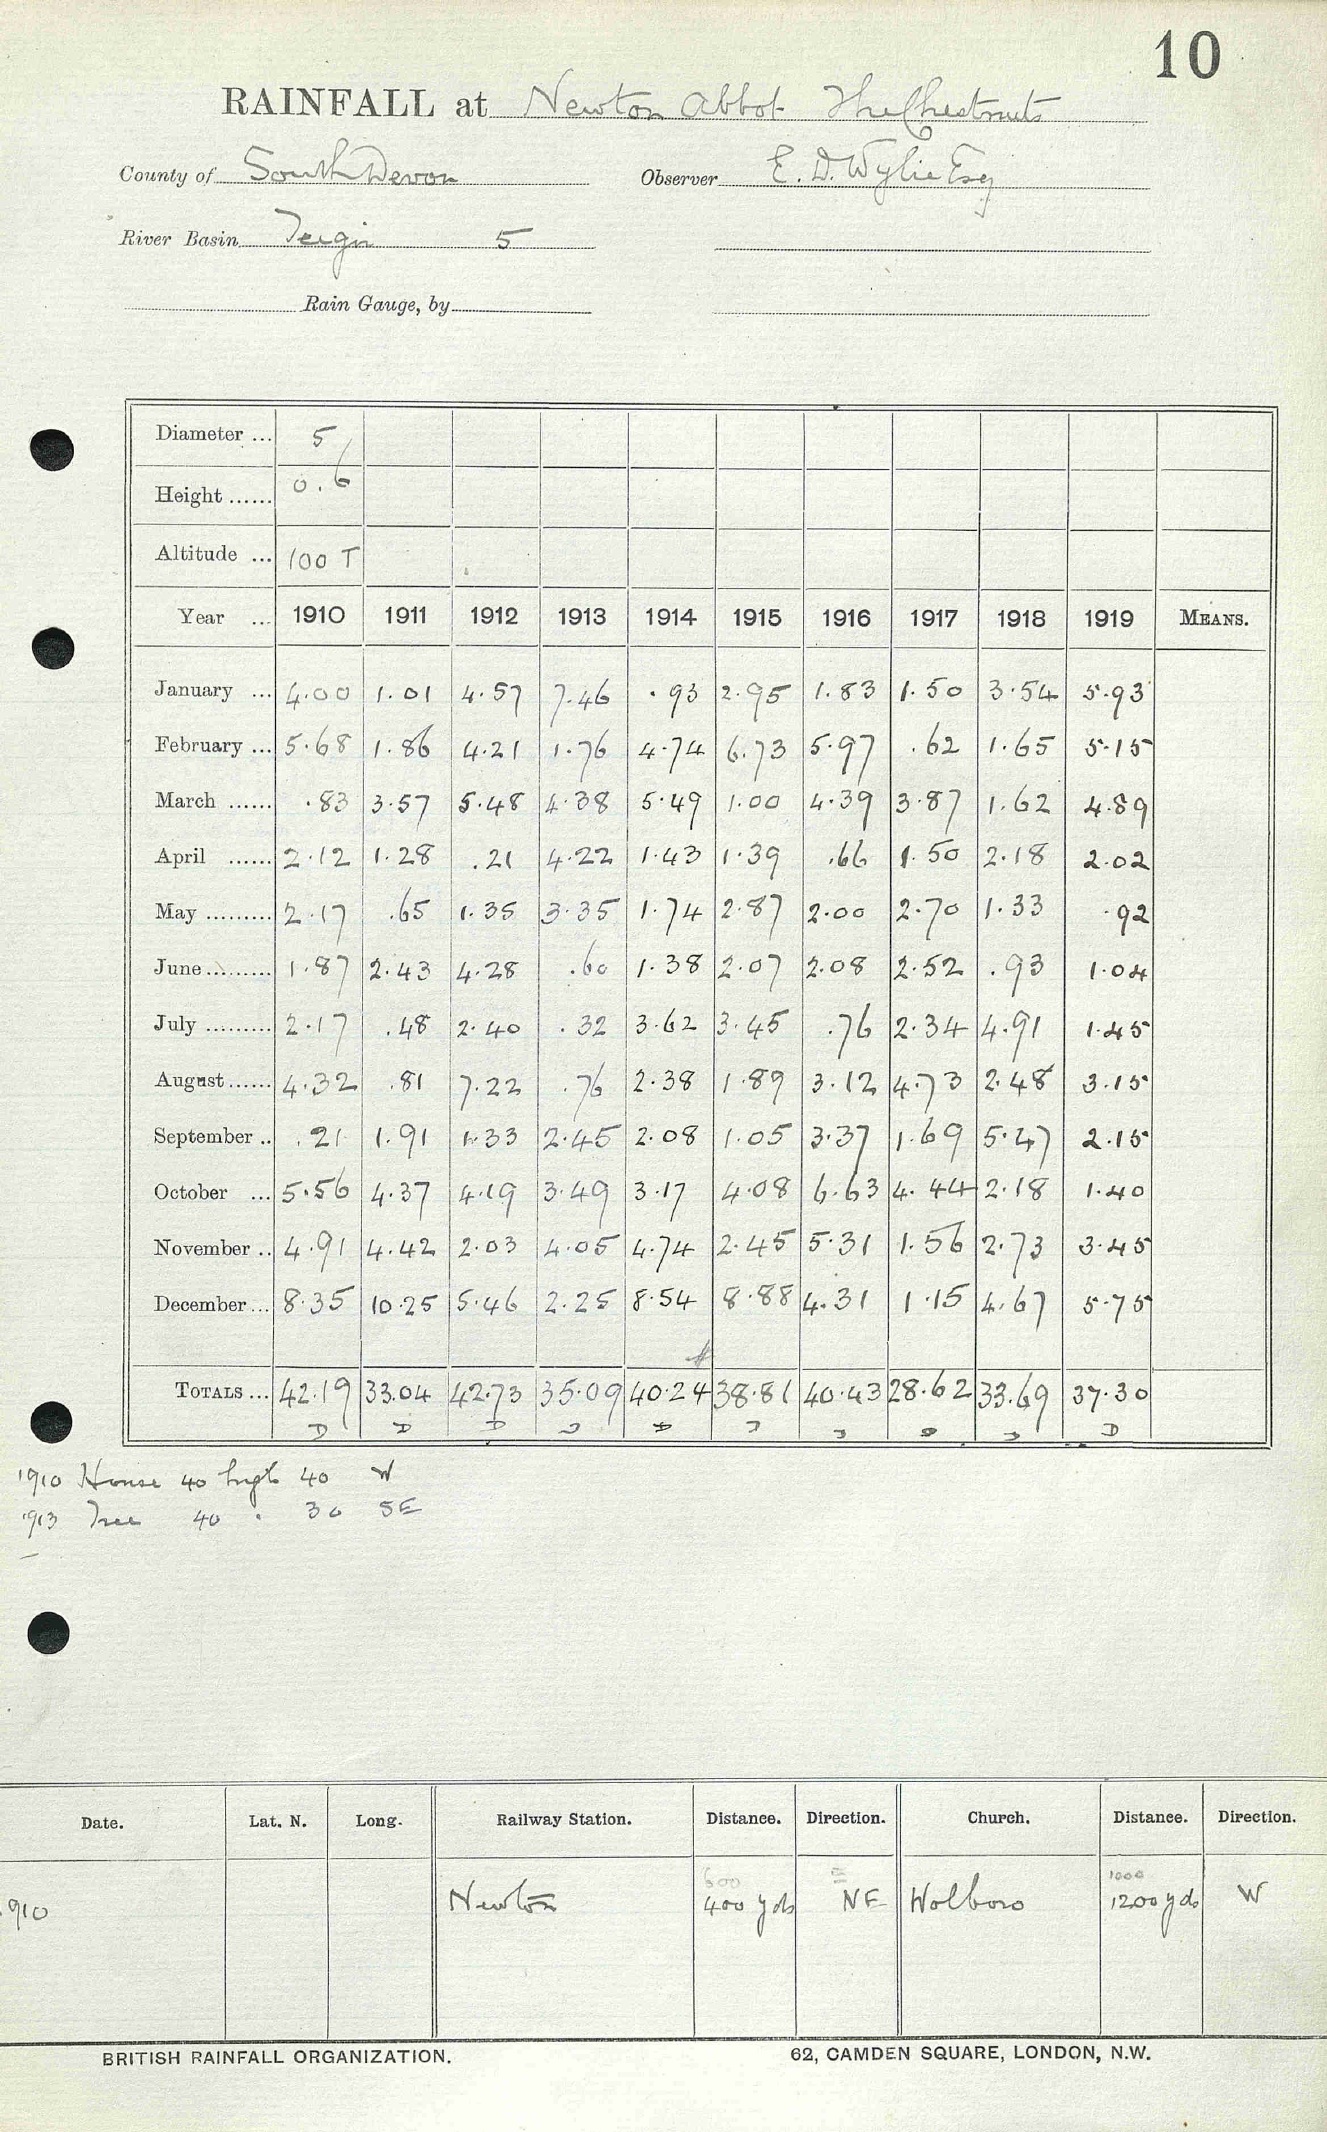 10
RAINFALL at Newton Abbot The Chestnuts
County of South Devon Observer E. D. Wylie Esq
River Basin Teign 5
Rain Gauge, by
Diameter ... 5
Height ...... 0.6
Altitude ... 100 T
Year ... 1910 1911 1912 1913 1914 1915 1916 1917 1918 1919 MEANS.
January ... 4.00 1.01 4.57 7.46 .93 2.95 1.83 1.50 3.54 5.93
February ... 5.68 1.86 4.21 1.76 4.74 6.73 5.97 .62 1.65 5.15
March ...... .83 3.57 5.48 4.38 5.49 1.00 4.39 3.87 1.62 4.89
April ...... 2.12 1.28 .21 4.22 1.43 1.39 .66 1.50 2.18 2.02
May ......... 2.17 .65 1.35 3.35 1.74 2.87 2.00 2.70 1.33 .92
June ......... 1.87 2.43 4.28 .60 1.38 2.07 2.08 2.52 .93 1.04
July ......... 2.17 .48 2.40 .32 3.62 3.45 .76 2.34 4.91 1.45
August ...... 4.32 .81 7.22 .76 2.38 1.89 3.12 4.73 2.48 3.15
September .. .21 1.91 1.33 2.45 2.08 1.05 3.37 1.69 5.47 2.15
October ... 5.56 4.37 4.19 3.49 3.17 4.08 6.63 4.44 2.18 1.40
November .. 4.91 4.42 2.03 4.05 4.74 2.45 5.31 1.56 2.73 3.45
December ... 8.35 10.25 5.46 2.25 8.54 8.88 4.31 1.15 4.67 5.75
TOTALS ... 42.19 33.04 42.73 35.09 40.24 38.81 40.43 28.62 33.69 37.30
D D D D D D D D D D
1910 House 40 high 40 W
1913 Tree 40 . 30 SE
Date. Lat. N. Long. Railway Station. Distance. Direction. Church. Distance. Direction.
600 E 1000
1910 Newton 400 yds NE Wolboro 1200 yds W
BRITISH RAINFALL ORGANIZATION. 62, CAMDEN SQUARE, LONDON, N.W.